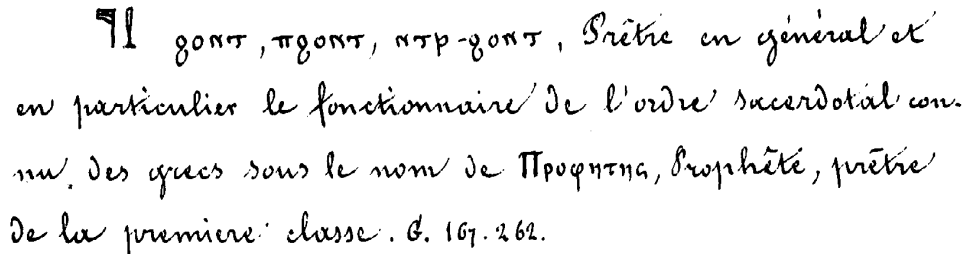 𓊹𓍛 ϩⲟⲛⲧ, ⲡϩⲟⲛⲧ, ⲛⲧⲣ-ϩⲟⲛⲧ, Prêtre en général et
en particulier le fonctionnaire de l'ordre sacerdotal con-
nu des grecs sous le nom de Προφητης, Prophête, prêtre
de la premiere classe. G. 167. 262.